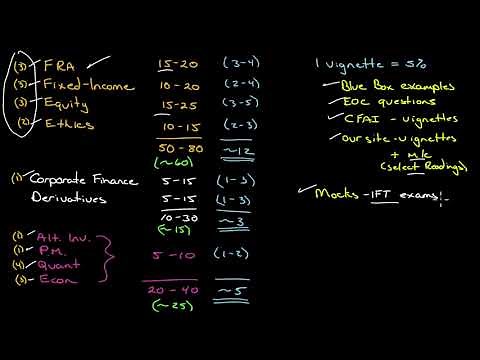 (3) FRA ✓ 15-20 (3-4)
(5) Fixed-Income 10-20 (2-4)
(3) Equity 15-25 (3-5)
(2) Ethics 10-15 (2-3)
50-80 ~12
(~60)
(1) Corporate Finance 5-15 (1-3)
Derivatives 5-15 (1-3)
10-30 ~3
(~15)
Alt. Inv.
(1) P.M.
(4) Quant 5-10 (1-2)
(3) Econ
20-40 ~5
(~25)
1 vignette = 5%
✓ Blue Box examples
✓ EOC questions
✓ CFAI - vignettes
✓ our site - vignettes
+ m/c
(select Readings)
✓ Mocks - IFT exams